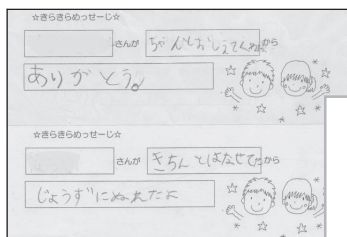 ☆きらきらめっせーじ☆
さんが ちゃんとおしえてくれたから
ありがとう。
☆きらきらめっせーじ☆
さんが きちんとはなせてたから
じょうずにぬれたよ